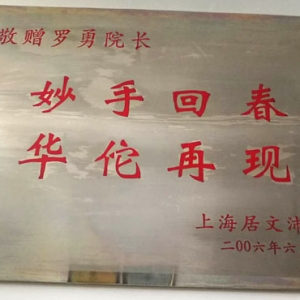 敬赠罗勇院长
妙手回春
华佗再现
上海居文沛
二00六年六